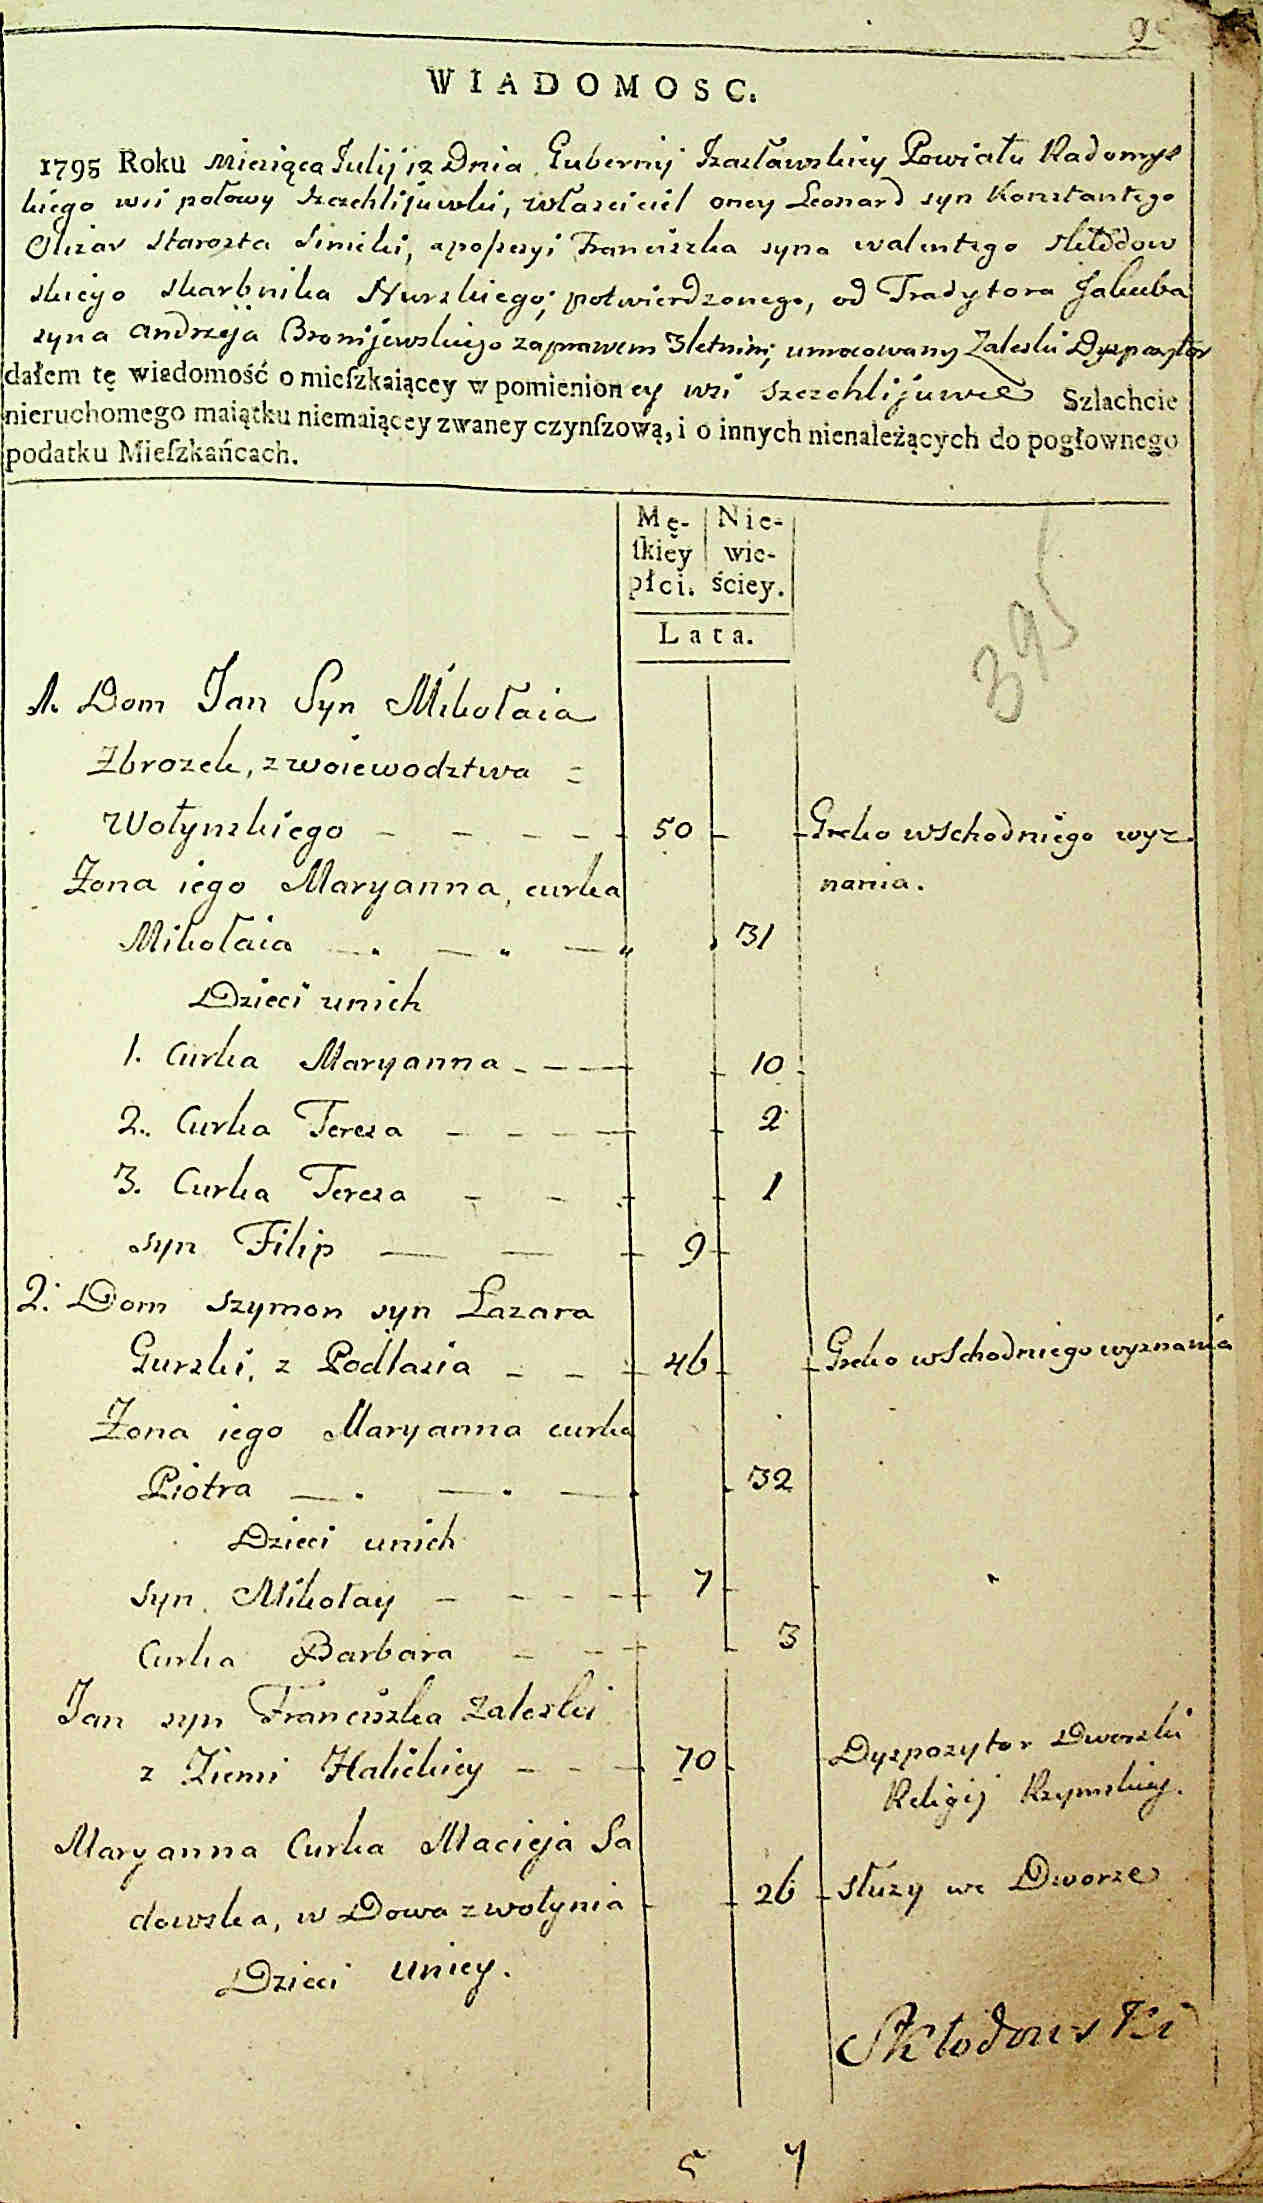 WIADOMOSC.
1795 Roku Miesiąca Julij 12 Dnia Gubernij Izasławskiey Powiatu Radomys
kiego wsi połowy Szczchlijuwki, własciciel oney Leonard syn Konstantego
Olizar Starosta, a possesyi Franciszka syna walentego Skłodow
skiego skarbnika Nurskiego; potwierdzonego, od Tradytora Jakuba
syna Andrzeja Bronijewskiego za prawem 3letnim, umocowany Zaleski Dyspozytor
dałem tę wiadomość o mieſzkaiącey w pomienioney wsi Szczchlijuwce Szlachcie
nieruchomego maiątku niemaiącey zwaney czynſzową, i o innych nienależących do pogłownego
podatku Mieſzkańcach.
Mę- Nie-
ſkiey wie-
płci. ściey.
Lata.
395
1. Dom Jan Syn Mikołaia
Zbrozek, z woiewodztwa
Wołynskiego 50 Greko wschodniego wyz
Zona iego Maryanna, curka nania.
Mikołaia 31
Dzieci unich
1. Curka Maryanna 10
2. Curka Teresa 2
3. Curka Teresa 1
syn Filip 9
2. Dom Szymon syn Łazara
Gurski, z Podlasia 46 Greko wschodniego wyznania
Zona iego Maryanna curka
Piotra 32
Dzieci unich
Syn Mikołay 7
Curka Barbara 3
Jan syn Franciszka Zaleski
z Ziemi Halickiey 70 Dyspozytor Dworski
Religij Rzymskiey.
Maryanna Curka Macieja Sa
dowska, w Dowa z wołynia 26 służy we Dworze
Dzieci uniey.
Skłodowski
5 7